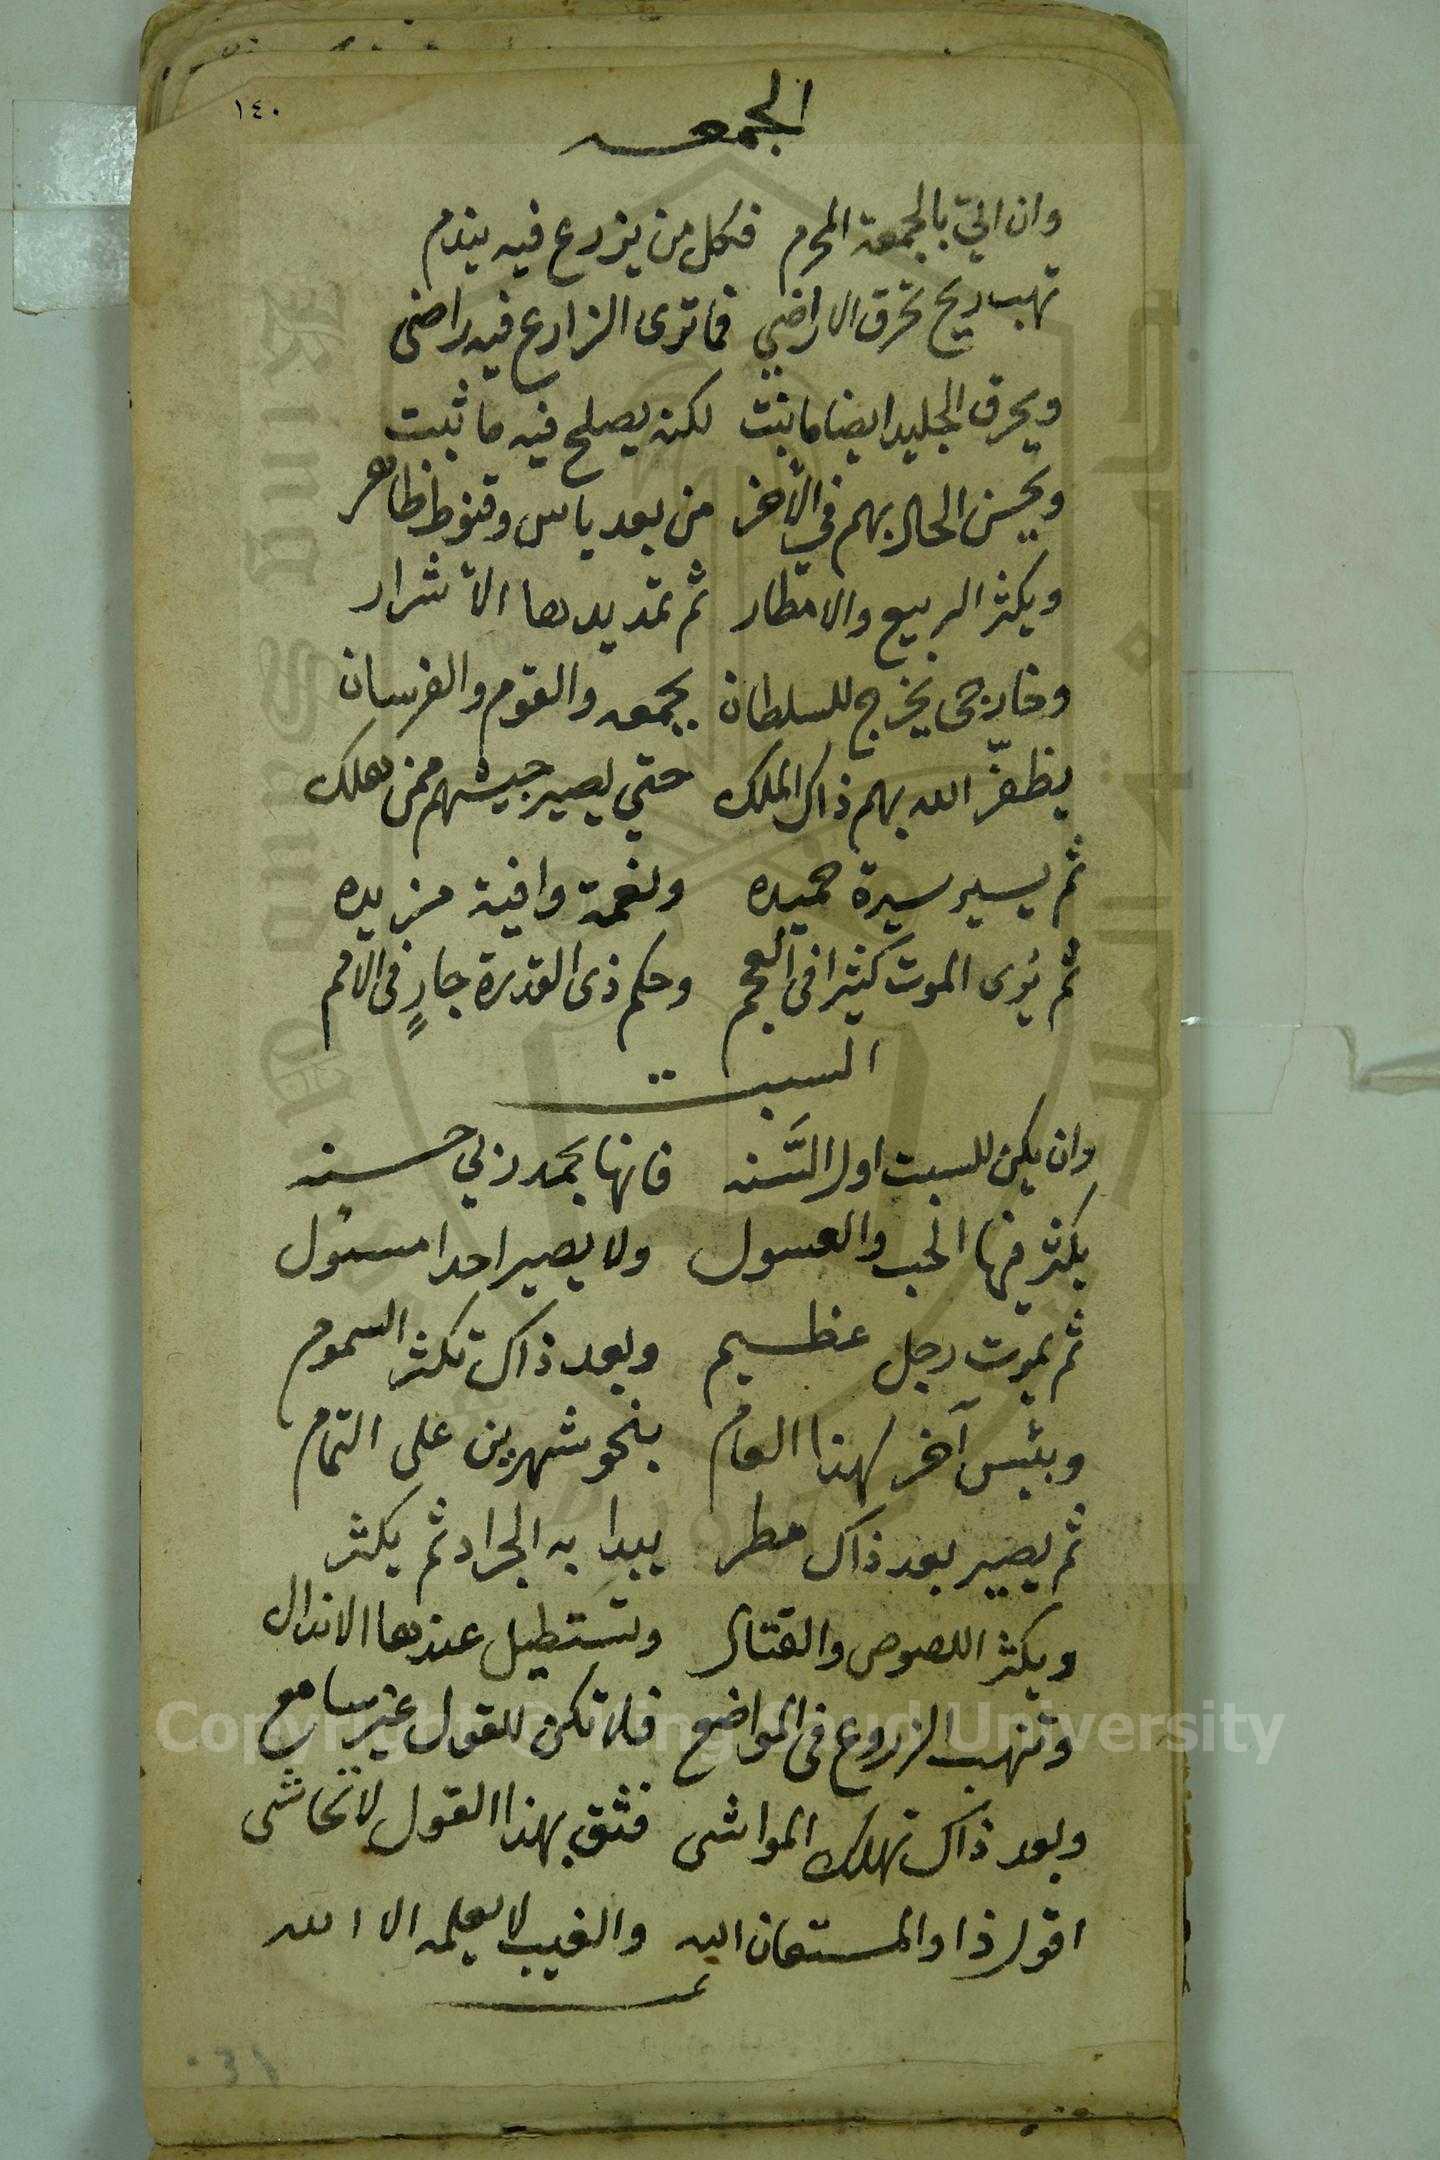 ١٤٠
الجمعه
وان اتي بالجمعة المحرم فكل من يزرع فيه يندم
تهب ريح تحرق الاراضي فما ترى الزارع فيه راضى
ويحرق الجليد ايضا ما ينبت لكنه يصلح فيه ما ثبت
ويحسن الحال بهم في الآخر من بعد ياس وقنوط ظاهر
ويكثر الربيع والامطار ثم تمد يدها الاشرار
وخارجى يخرج للسلطان يجمعه والقوم والفرسان
يظفر الله بهم ذاك الملك حتي يصير جيشهم ممن هلك
ثم يسير سيرة حميده ونعمة وافية مزيده
ثم يُرى الموت كثيرا في العجم وحكم ذى القدرة جارٍ فى الامم
السبت
وان يكن للسبت اول السَّنه فانها بحمد ربي حسنه
يكثر فيها الحب والعسول ولا يصير احدا مسئول
ثم يموت رجل عظيم وبعد ذاك تكثر السموم
وبئس آخر لهذا العام بنحو شهرين على التمام
ثم يصير بعد ذاك مطر يبدا به الجراد ثم يكثر
ويكثر اللصوص والقتال وتستطيل عندها الاندال
وتنهب الزروع فى المواضع فلا تكن للقول غير سامع
وبعد ذاك تهلك المواشى فثق بهذا القول لا تحاشى
اقول ذا والمستعان اليه والغيب لا يعلمه الا الله
Copyright © King Saud University